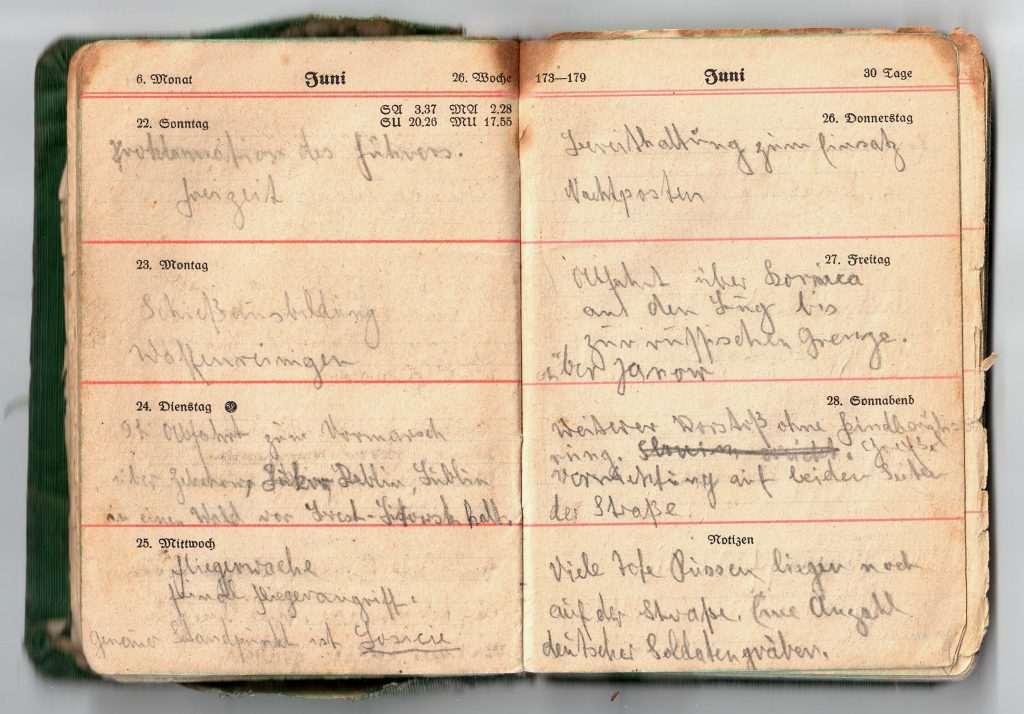 6. Monat Juni 26. Woche
SA 3,37 MA 2,28
SU 20,26 MU 17,55
22. Sonntag
Proklamation des Führers.
Freizeit
23. Montag
Schießausbildung
Waffenreinigen
24. Dienstag
Abfahrt zum Vormarsch
über Zelechow, Deblin, Lublin
in einen Wald vor Brest-Litowsk halt.
25. Mittwoch
Fliegerwache
feindl. Fliegerangriff.
Genauer Standpunkt ist Losicie
173—179 Juni 30 Tage
26. Donnerstag
Bereithaltung zum Einsatz
Nachtposten
27. Freitag
Abfahrt über Kornica
an den Bug bis
zur russischen Grenze.
über Janow
28. Sonnabend
Weiterer Vorstoß ohne Feindberüh-
rung.
auf beiden Seiten
der Straße.
Notizen
Viele tote Russen liegen noch
auf der Straße. Eine Anzahl
deutscher Soldatengräber.